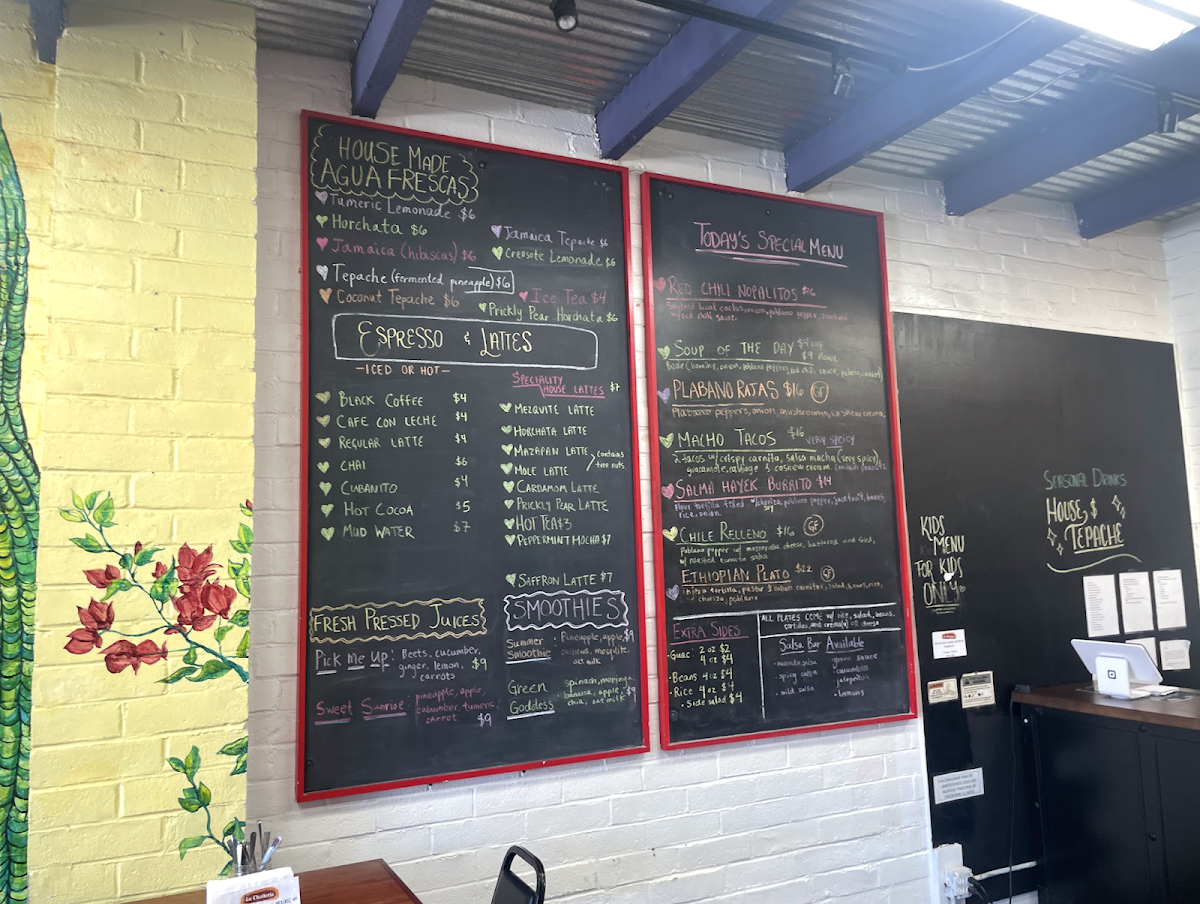 HOUSE MADE
AGUA FRESCAS
Tumeric Lemonade $6
Horchata $6
Jamaica (hibiscus) $6
Tepache (fermented pineapple) $6
Coconut Tepache $6
Jamaica Tepache $6
Creosote Lemonade $6
Ice Tea $4
Prickly Pear Horchata $6
ESPRESSO & LATTES
-ICED OR HOT-
BLACK COFFEE $4
CAFE CON LECHE $4
REGULAR LATTE $4
CHAI $6
CUBANITO $4
HOT COCOA $5
MUD WATER $7
SPECIALITY
HOUSE LATTES $7
MEZQUITE LATTE
HORCHATA LATTE
MAZAPAN LATTE
MOLE LATTE
contains
tree nuts
CARDAMOM LATTE
PRICKLY PEAR LATTE
HOT TEA $3
PEPPERMINT MOCHA $7
SAFFRON LATTE $7
FRESH PRESSED JUICES
Pick me up: Beets, cucumber,
ginger, lemon, $9
carrots
Sweet Sunrise: pineapple, apple,
cucumber, tumeric,
carrot $9
SMOOTHIES
Summer Smoothie: Pineapple, apple, $9
mesquite,
oat milk
Green Goddess: spinach, moringa,
banana, apple, $9
chia, oat milk
TODAY'S SPECIAL MENU
RED CHILI NOPALITOS $16
cactus, onion, poblano pepper,
red chili sauce
SOUP OF THE DAY $4 cup
$9 Bowl
onion, poblano pepper,
POLABANO RAJAS $16 GF
Poblano peppers, onion, mushrooms, cashew crema,
MACHO TACOS $16 VERY SPICY
2 tacos w/ crispy carnita, salsa macha (very spicy),
guacamole, cabbage & cashew cream. Contain peanuts
SALMA HAYEK BURRITO $14
Flour tortilla filled w/ chorizo, poblano pepper, jackfruit, beans,
rice, onion
CHILE RELLENO $16 GF
Poblano pepper w/ mozzerella cheese, battered and fried,
w/ roasted tomato salsa
ETHIOPIAN PLATO $22 GF
Injera tortilla, pastor & carnitas, salad, beans, rice,
chorizo, poblano
EXTRA SIDES
Guac: 2 oz $2
4 oz $4
Beans 4 oz $4
Rice 4 oz $4
Side salad $4
ALL PLATES COME w/ rice, salad, beans,
tortillas, and crema(v) or cheese
Salsa Bar Available
avocado salsa
spicy salsa
mild salsa
green sauce
cucumbers
jalapeños
lemons
KIDS
MENU
FOR KIDS
ONLY
SEASONAL DRINKS
HOUSE $
TEPACHE
La Chaiteria